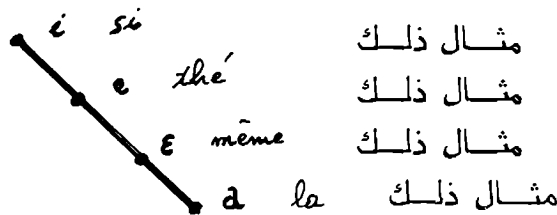 i si مثال ذلك
e thé مثال ذلك
ε même مثال ذلك
a la مثال ذلك